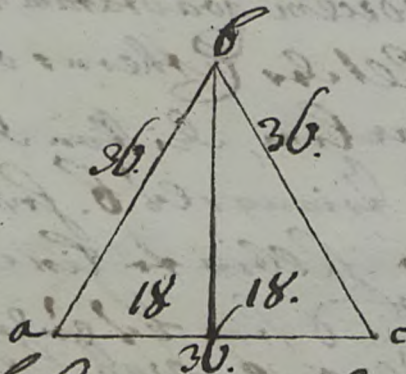 b
36. 36.
18 18.
a c
36.